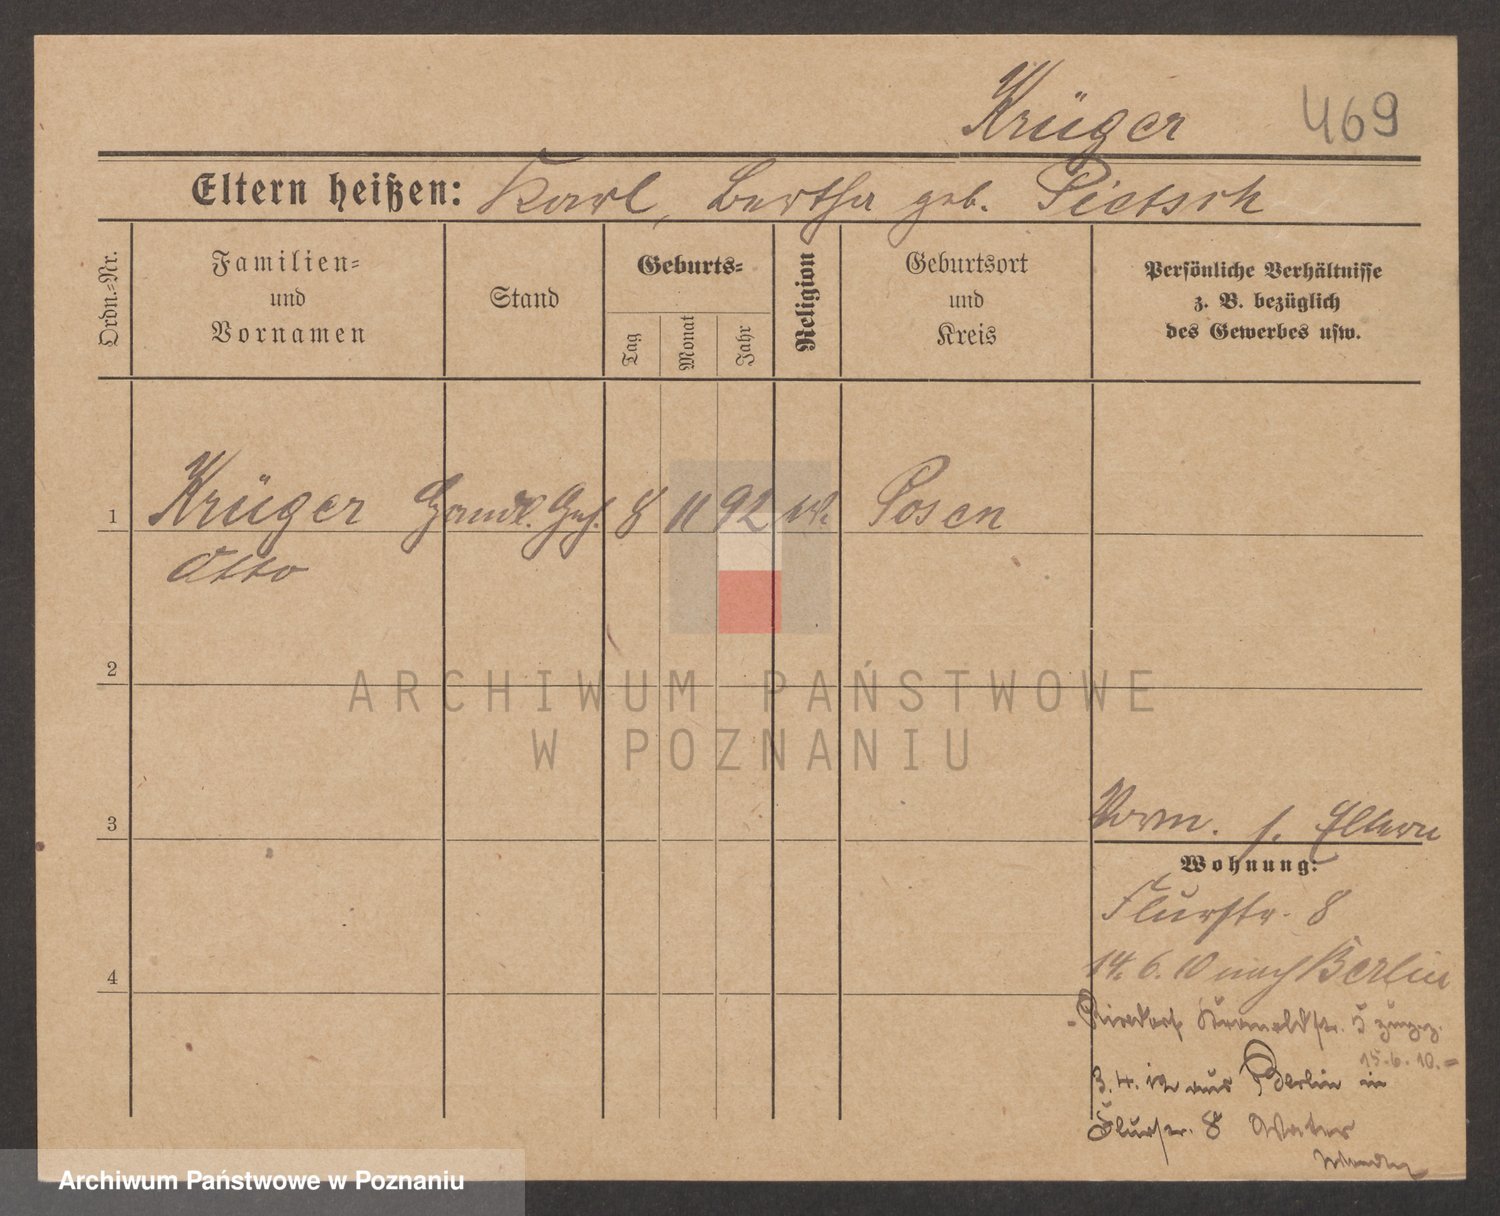 Krüger 469
Eltern heißen: Karl, Bertha geb. Pietsch
Ordn.-Nr.
Familien-
und
Vornamen
Stand
Geburts-
Tag
Monat
Jahr
Religion
Geburtsort
und
Kreis
Persönliche Verhältnisse
z. B. bezüglich
des Gewerbes usw.
1 Krüger Handl. Geh. 8 11 92 Posen
Otto
2
ARCHIWUM PAŃSTWOWE
W POZNANIU
3
Vorm. s. Eltern
Wohnung:
Flurstr. 8
4
14. 6. 10 nach Berlin
Rixdorf 5 zugez.
15.6.10.-
3. 4. 12 aus Berlin in
Flurstr. 8 Vater
Archiwum Państwowe w Poznaniu